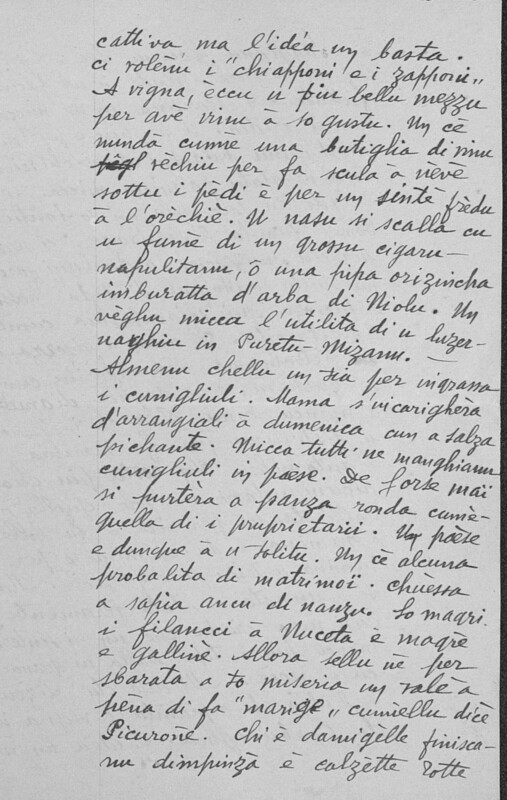 cattiva ma l'idéa un basta.
ci rolênu i "chiapponi e i zapponi„
A vigna, eccu u piu bellu mezzu
per avè vinu a so gustu. Un cê
nundà cumme una butiglia di vinu
vechiu per fa scula a nêvê
sottu i pêdi ê per un sintê frêdu
a l'orêchiê. U nasu si scalla cu
u fumê di un grossu cigaru-
napulitanu, ô una pipa orizincha
imburatta d'arba di Niolu. Un
vêghu micca l'utilita di u luzer-
naghiu in Puretu-Mizanu.
Almenu chellu un sia per ingrassa
i cunigliuli. Mama s'incarighêra
d'arrangiali à dumenica cun a salza
pichante. Micca tutti ne manghianu
cunigliuli in paese. De forse maï
si purtêra a panza ronda cumê-
quella di i prupietarii. Un paese
e dunque à u solitu. Un cê alcuna
probalita di matrimoï. chuessa
a sapia ancu di nanzu. So magri
i filanci à Nuceta ê magrê
e gallinê. Allora sellu nê per
sbarata a so miseria un valê a
pêna di fa "marige„ cumêllu dicê
Picurone. Chi ê damigêlle finisca-
nu dimpinza ê calzêtte rotte